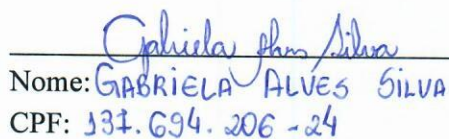 Gabriela Alves Silva
Nome: GABRIELA ALVES SILVA
CPF: 137.694.206-24